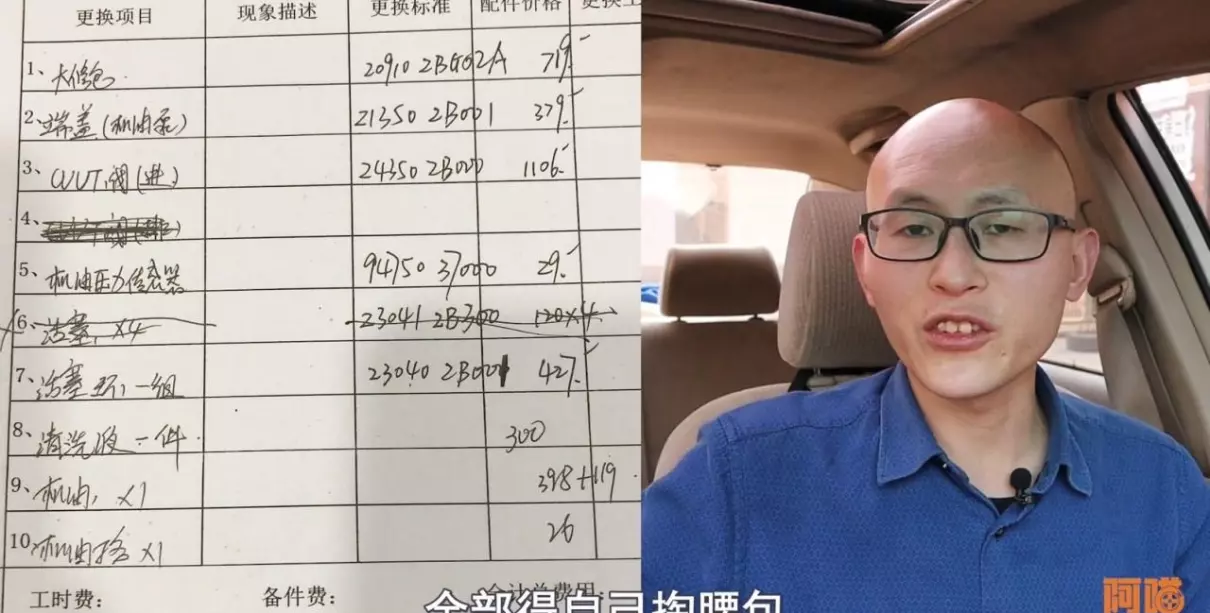 更换项目 现象描述 更换标准 配件价格
1、大修包 20910 2BG02A 719.-
2、端盖(机油泵) 21350 2B001 379.-
3、CVVT阀(进) 24350 2B000 1106.-
4、
5、机油压力传感器 94750 37000 29.-
6、活塞,×4 23041 2B300 120×4
7、活塞环,一组 23040 2B001 427.-
8、清洗液一件 300
9、机油,×1 398+119
10、机油格 ×1 26
工时费: 备件费:
全部得自己掏腰包
阿喵